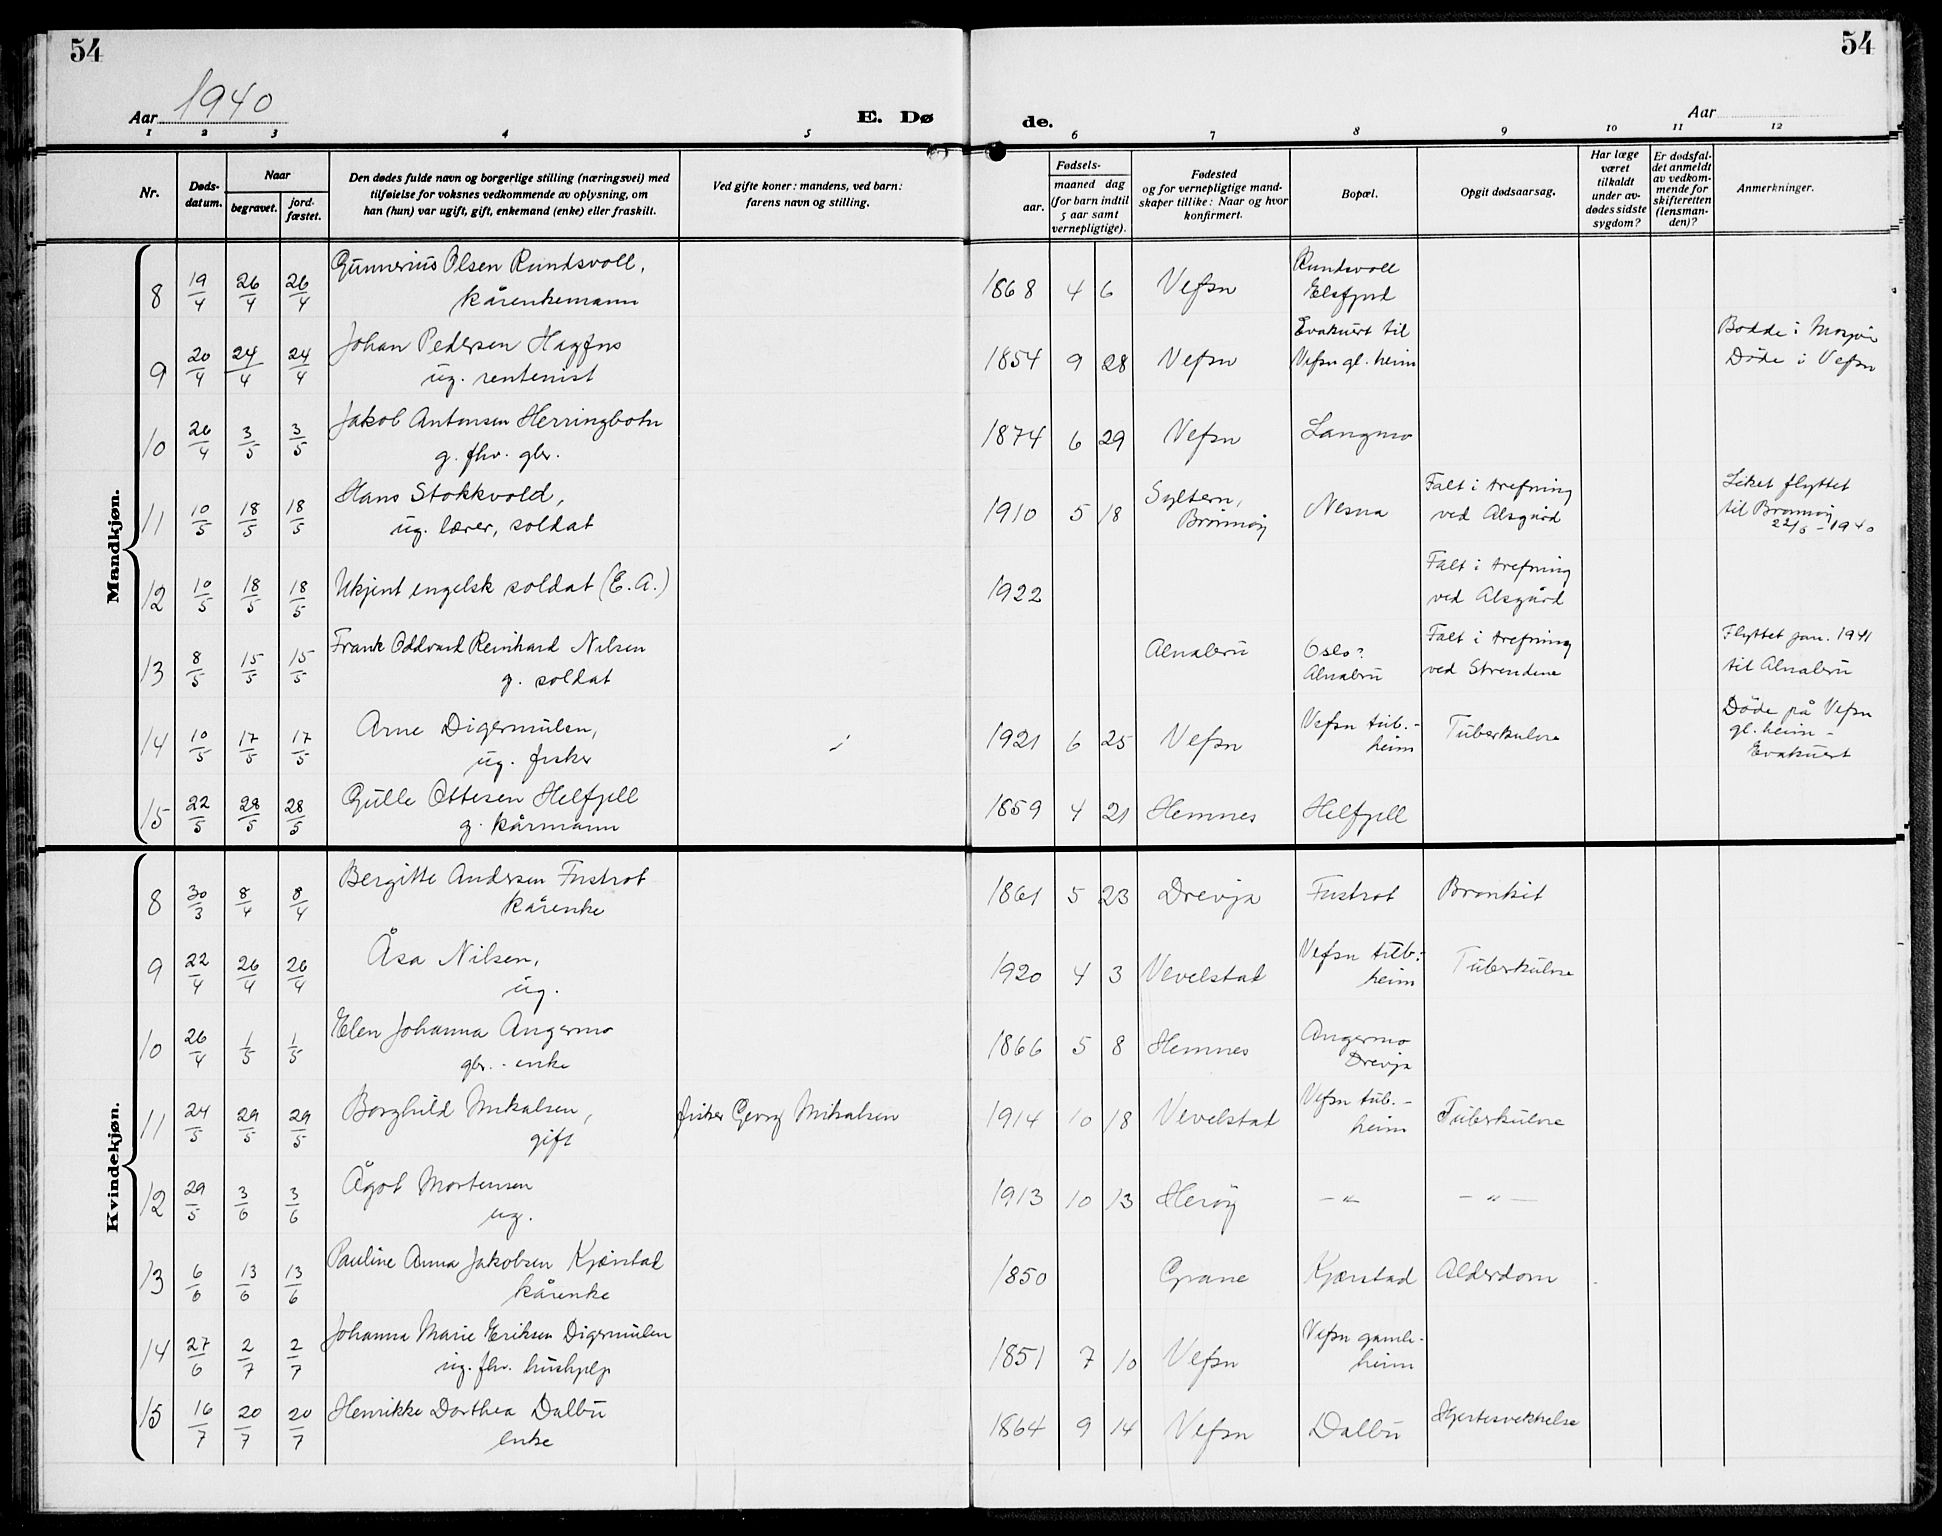 54
54
Aar 1940
E. Dø
de.
Aar
1 2 3 4 5 6 7 8 9 10 11 12
Nr.
Døds-
datum.
Naar
begravet.
jord-
fæstet.
Den dødes fulde navn og borgerlige stilling (næringsvei) med
tilføielse for voksnes vedkommende av oplysning, om
han (hun) var ugift, gift, enkemand (enke) eller fraskilt.
Ved gifte koner: mandens, ved barn:
farens navn og stilling.
Fødsels-
aar.
maaned dag
(for barn indtil
5 aar samt
vernepligtige).
Fødested
og for vernepligtige mand-
skaper tillike: Naar og hvor
konfirmert.
Bopæl.
Opgit dødsaarsag.
Har læge
været
tilkaldt
under av-
dødes sidste
sygdom?
Er dødsfal-
det anmeldt
av vedkom-
mende for
skifteretten
(lensman-
den)?
Anmerkninger.
Mandkjøn.
8 19/4 26/4 26/4 Gunnerius Olsen Rundsvoll,
kårenkemann
1868 4 6 Vefsn Rundsvoll
Elsfjord
9 20/4 24/4 24/4 Johan Pedersen Hagfns
ug. rentenist
1854 9 28 Vefsn Evakuert til
Vefsn gl. heim
Bodde i Mosjøen
Døde i Vefsn
10 26/4 3/5 3/5 Jakob Antonsen Herringbotn
g. fhv. gbr.
1874 6 29 Vefsn Langmo
11 10/5 18/5 18/5 Hans Stokkvold,
ug. lærer, soldat
1910 5 18 Syltern,
Brønnøy
Nesna Falt i trefning
ved Alsgård
Liket flyttet
til Brønnøy
22/5 - 1940
12 10/5 18/5 18/5 Ukjent engelsk soldat (E. A.)
1922 Falt i trefning
ved Alsgård
13 8/5 15/5 15/5 Frank Oddvard Reinhard Nilsen
g. soldat
Alnabru Oslo?
Alnabru
Falt i trefning
ved Strendene
Flyttet jan. 1941
til Alnabru
14 10/5 17/5 17/5 Arne Digermulen,
ug. fisker
1921 6 25 Vefsn Vefsn tub.-
heim
Tuberkulose
Døde på Vefsn
gl. heim -
Evakuert
15 22/5 28/5 28/5 Gulle Ottesen Helfjell
g. kårmann
1859 4 21 Hemnes Helfjell
Kvindekjøn.
8 30/3 8/4 8/4 Bergitte Andersen Fustrot
kårenke
1861 5 23 Drevja Fustrot Bronkit
9 22/4 26/4 26/4 Åsa Nilsen,
ug.
1920 4 3 Vevelstad Vefsn tub.-
heim
Tuberkulose
10 26/4 1/5 1/5 Elen Johanna Angermo
gbr. - enke
1866 5 8 Hemnes Angermo
Drevja
11 24/5 29/5 29/5 Borghild Mikalsen,
gift
fisker Georg Mikalsen
1914 10 18 Vevelstad Vefsn tub.-
heim
Tuberkulose
12 29/5 3/6 3/6 Ågot Mortensen
ug.
1913 10 13 Herøy — „ — — „ —
13 6/6 13/6 13/6 Pauline Anna Jakobsen Kjærstad
kårenke
1850 Grane Kjærstad Alderdom
14 27/6 2/7 2/7 Johanna Marie Eriksen Digermulen
ug. fhv. hushjelp
1851 7 10 Vefsn Vefsn gamle-
heim
15 16/7 20/7 20/7 Henrikke Dorthea Dalbu
enke
1864 9 14 Vefsn Dalbu Hjertesvekkelse